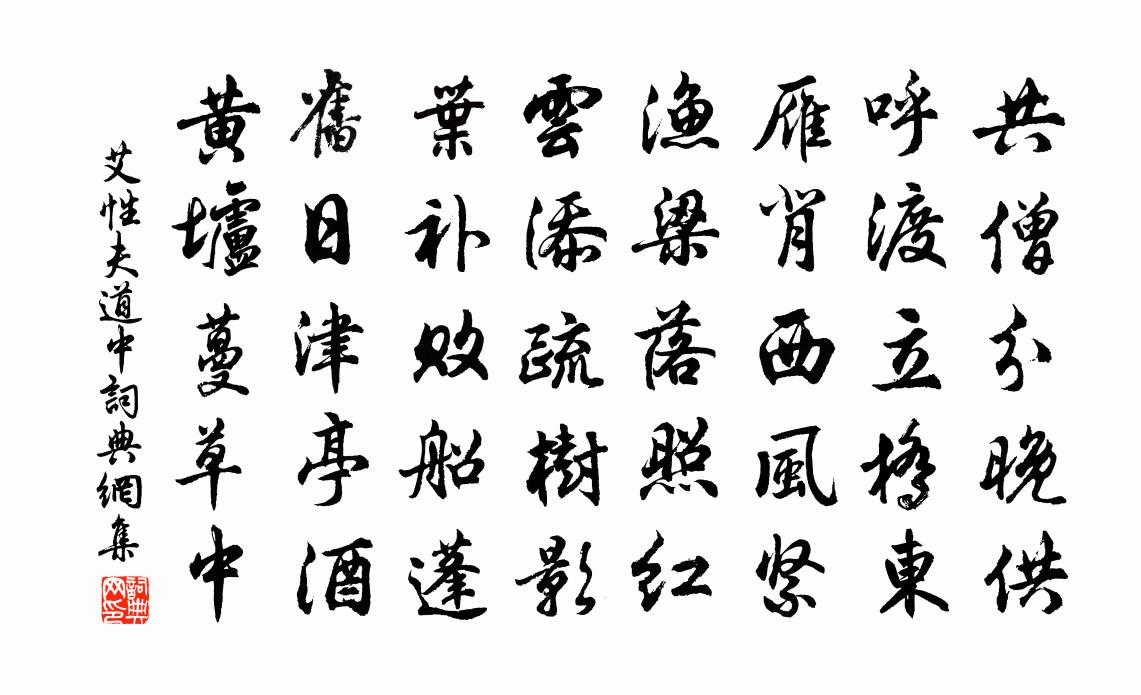 共僧分晚供
呼渡立橋東
雁背西風緊
漁梁落照紅
雲添疏樹影
葉补敗船蓬
舊日津亭酒
黄壚蔓草中
艾性夫道中詞典網集
詞典网印